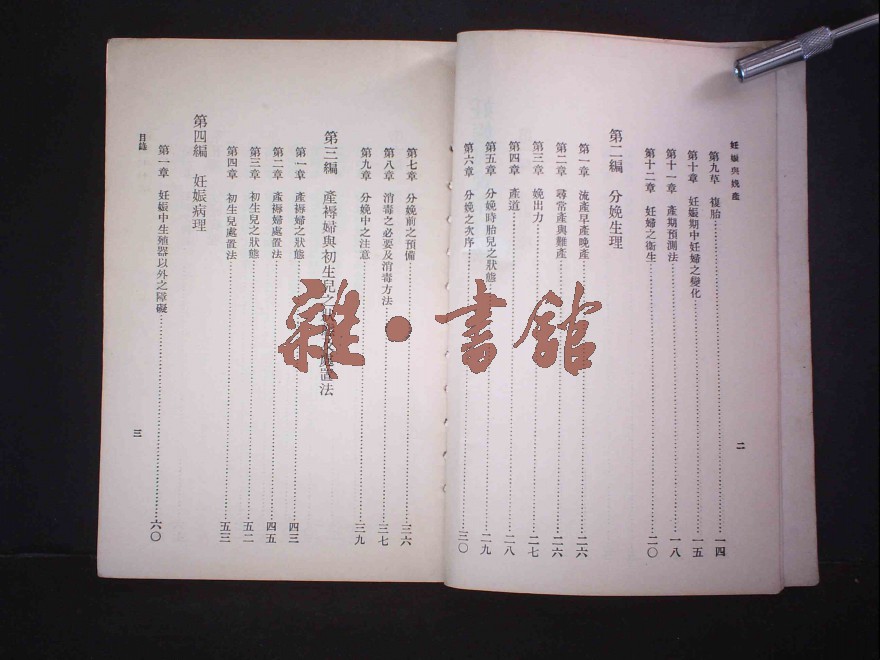 妊娠與娩產
第九草 複胎 一四
第十章 妊娠期中妊婦之變化 一五
第十一章 產期預測法 一八
第十二章 妊婦之衞生 二〇
第二編 分娩生理
第一章 流產早產晚產 二六
第二章 尋常產與難產 二六
第三章 娩出力 二七
第四章 產道 二八
第五章 分娩時胎兒之狀態 二九
第六章 分娩之次序 三〇
二
第七章 分娩前之預備 三六
第八章 消毒之必要及消毒方法 三七
第九章 分娩中之注意 三九
第三編 產褥婦與初生兒之狀 處置法
第一章 產褥婦之狀態 四三
第二章 產褥婦處置法 四五
第三章 初生兒之狀態 五二
第四章 初生兒處置法 五三
第四編 妊娠病理
第一章 妊娠中生殖器以外之障礙 六〇
目錄
三
雜·書館